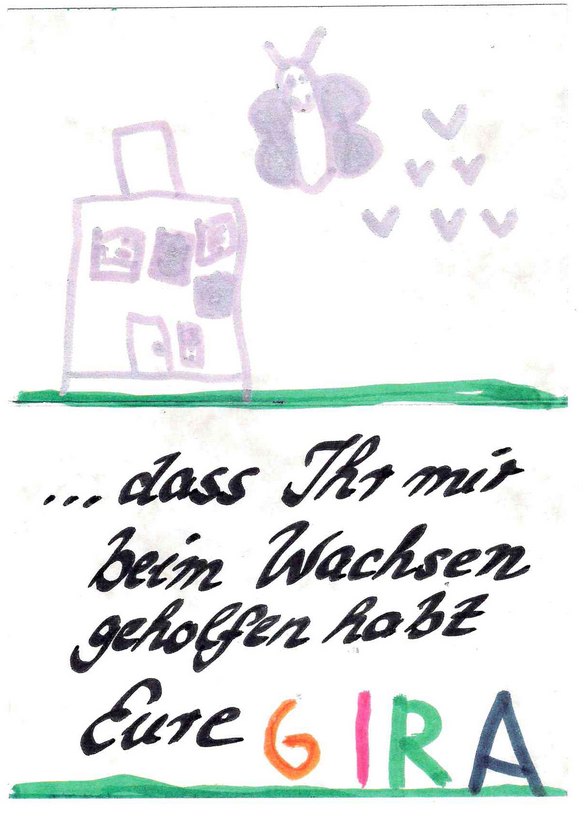 ...dass Ihr mir
beim Wachsen
geholfen habt
Eure GIRA